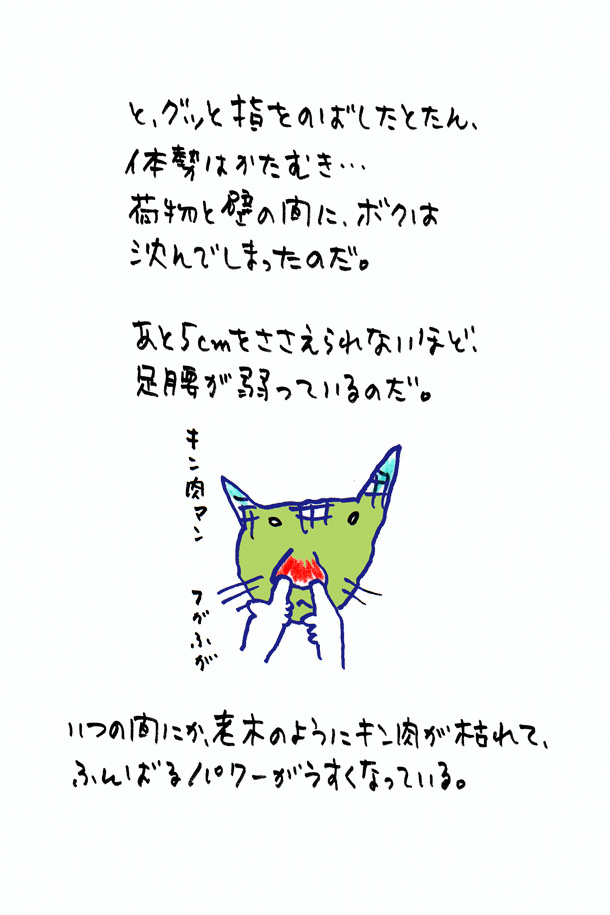 と、グッと指をのばしたとたん、
体勢はかたむき…
荷物と壁の間に、ボクは
沈んでしまったのだ。
あと5cmをささえられないほど、
足腰が弱っているのだ。
キン肉マン
フガふガ
いつの間にか、老木のようにキン肉が枯れて、
ふんばるパワーがうすくなっている。